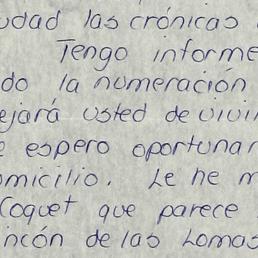 udad las crónicas
Tengo informe
do la numeración
ejará usted de vivir
e espero oportunar
omicilio. Le he m
Coquet que parece
incón de las Lomas